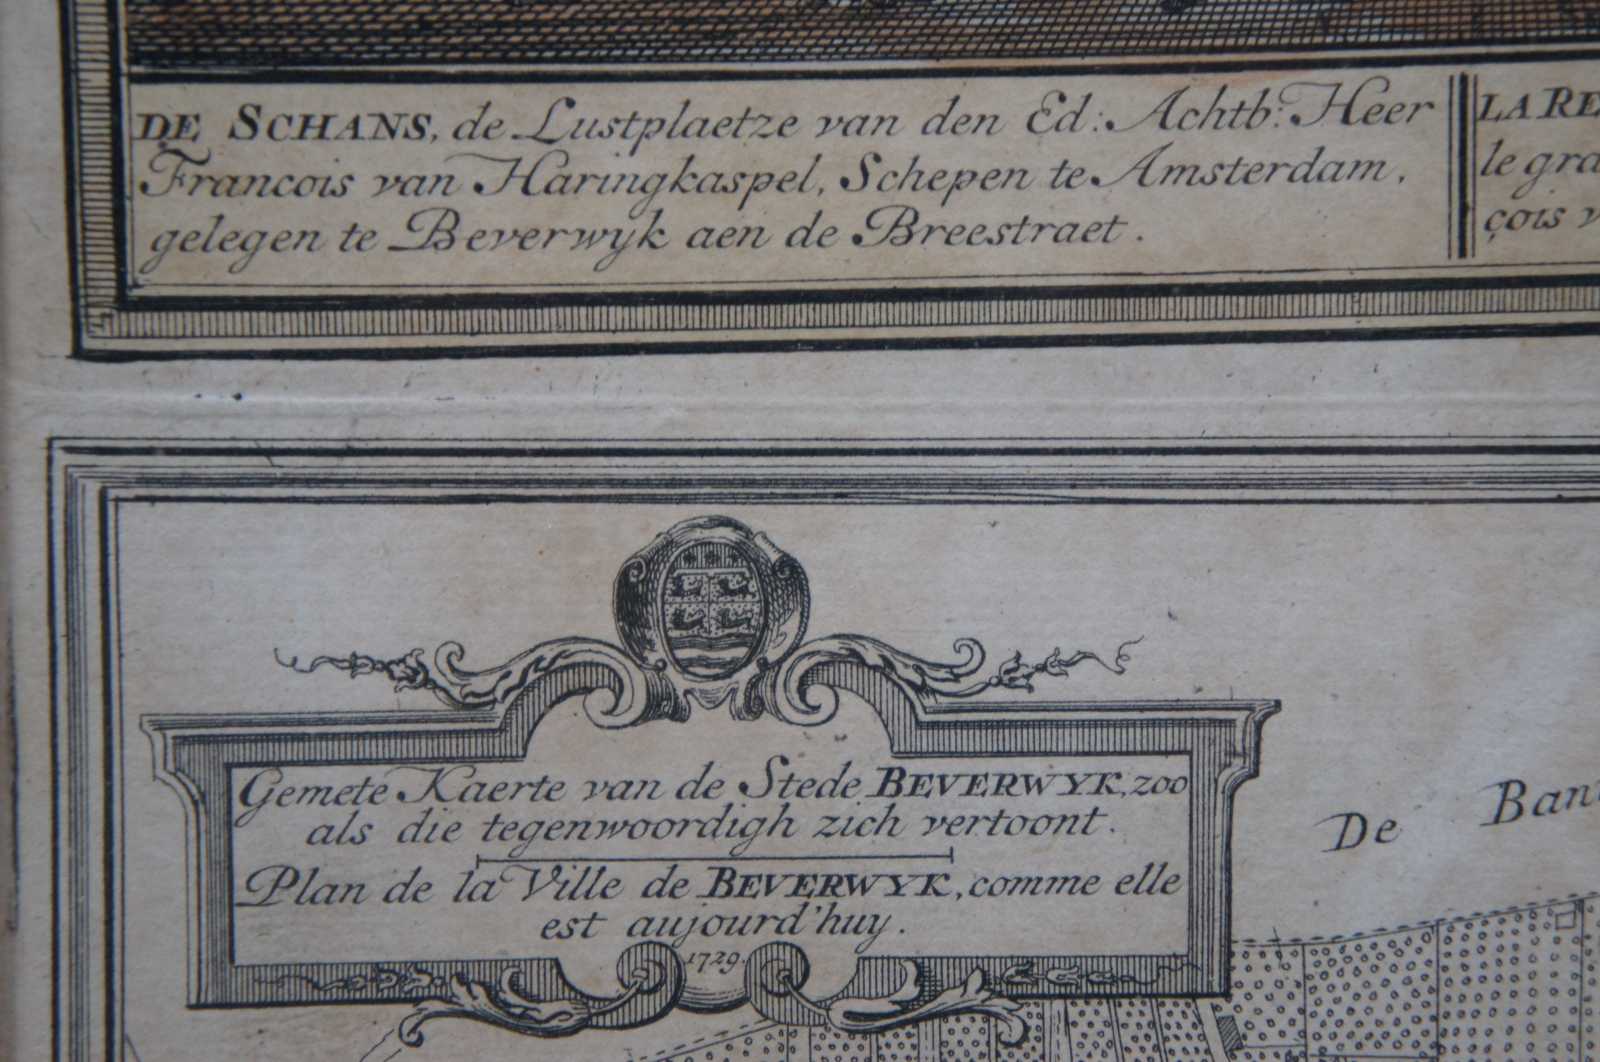 DE SCHANS, de Lustplaetze van den Ed: Achtb: Heer
Francois van Haringkaspel, Schepen te Amsterdam,
gelegen te Beverwyk aen de Breestraet.
LA RE
le gra
çois v
Gemete Kaerte van de Stede BEVERWYK, zoo
als die tegenwoordigh zich vertoont.
Plan de la Ville de BEVERWYK, comme elle
est aujourd'huy.
1729.
De Ban